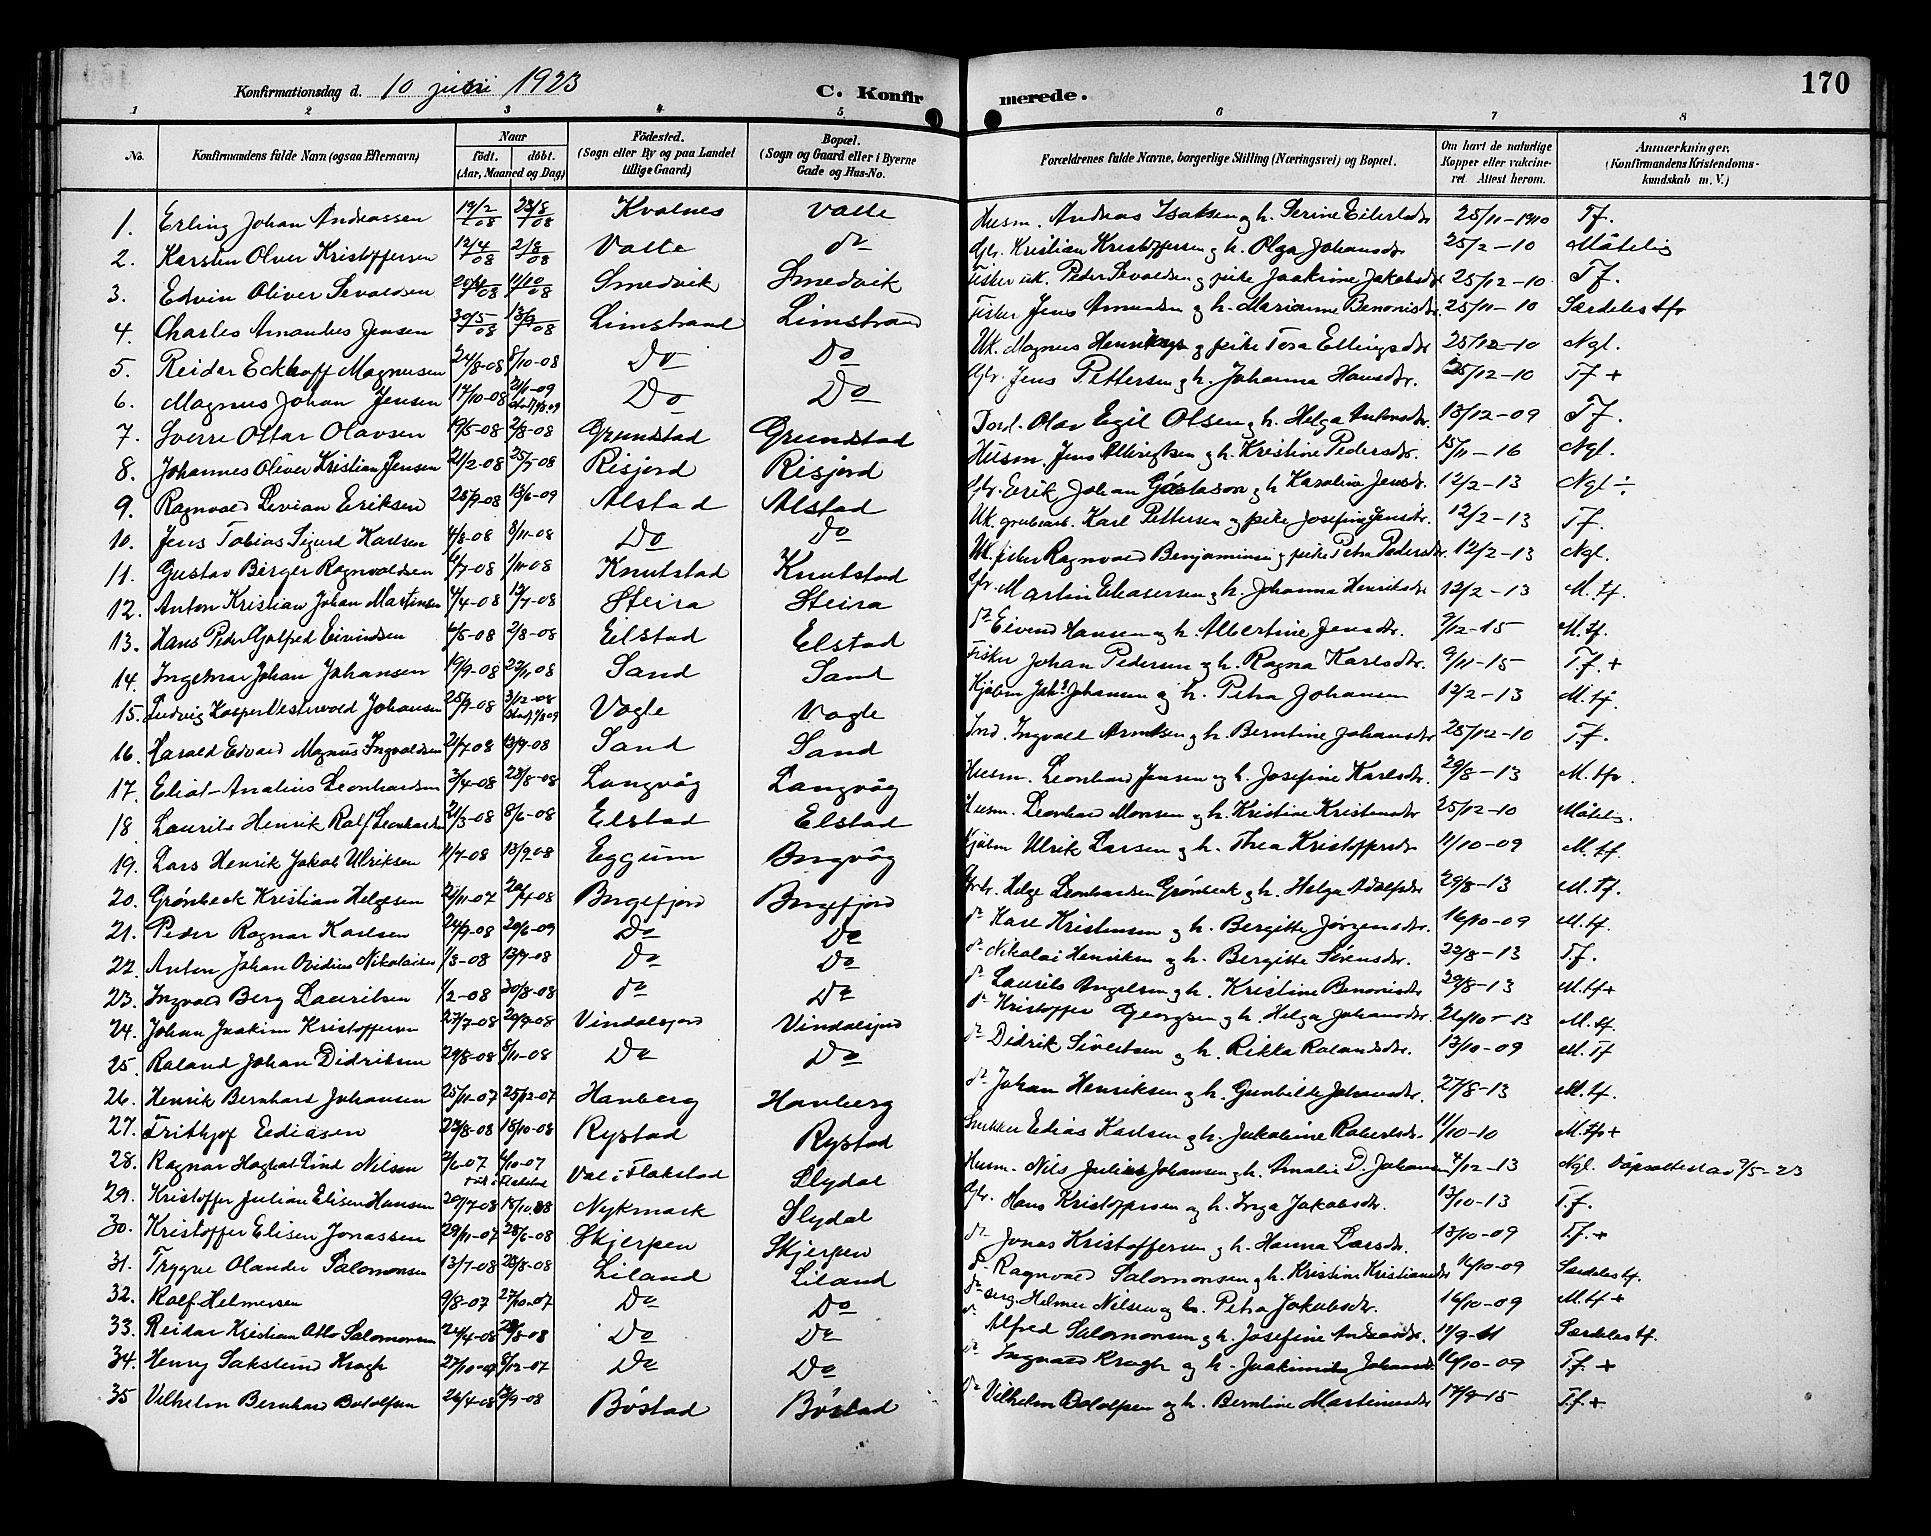 170
Konfirmationsdag d. 10 juni 1923 C. Konfirmerede.
1 2 3 4 5 6 7 8
No. Konfirmandens fulde Navn (ogsaa Efternavn) Naar født. døbt. (Aar, Maaned og Dag) Fødested. (Sogn eller By og paa Landet tillige Gaard) Bopæl. (Sogn og Gaard eller i Byerne Gade og Hus-No. Forældrenes fulde Navne, borgerlige Stilling (Næringsvei) og Bopæl. Om havt de naturlige Kopper eller vakcineret. Attest herom. Anmærkninger. (Konfirmandens Kristendomskundskab m. V.)
1. Erling Johan Andreassen 19/2 08 23/8 08 Kvalnes Valle Husm. Andreas Isaksen og h. Serine Eilertsdtr 25/11-1910 T.f.
2. Karsten Olver Kristoffersen 12/4 08 2/8 08 Valle do Gbr. Kristian Kristoffersen og h. Olga Johansdtr 25/2-10 Måtelig
3. Edvin Oliver Sevaldsen 11/10 08 Smedvik Smedvik Fisker uk. Peder Sevaldsen og pike Joakime Jakobsdtr 25/12-10 T.f.
4. Charles Amandus Jensen 30/5 08 13/9 08 Limstrand Limstrand Fisker Jens Amundsen og h. Marianne Benonisdtr 25/11-10 Særdeles tfr
5. Reidar Eckhoff Magnussen 24/8-08 8/10-08 Do Do Uk. Magnus Henriksen og pike Tora Ellingsdtr 25/12-10 Ngl.
6. Magnus Johan Jensen 17/10-08 21/1-09 Do Do Gbr. Jens Pettersen og h. Johanna Hansdtr. 25/12-10 T.f +
7. Sverre Ottar Olavsen 19/5-08 2/8-08 Grundstad Grundstad Jord. Olav Egil Olsen og h. Helga Antonsdtr. 13/12-09 T.f.
8. Johannes Oliver Kristian Jensen 21/2-08 25/7-08 Risjord Risjord Husm. Jens Albrigtsen og h. Kristine Pedersdtr. 15/11-16 Ngl.
9. Ragnvald Levian Eriksen 25/9-08 13/6-09 Alstad Alstad Gbr. Erik Johan Göstason og h Karoline Jensdtr. 12/2-13 Ngl ÷
10. Jens Tobias Sigurd Karlsen 4/8-08 8/11-08 Do Do Uk. grubearb. Karl Pettersen og pike Josefine Jensdtr. 12/2-13 T.f.
11. Gustav Berger Ragnvaldsen 6/7-08 1/11-08 Knutstad Knutstad Uk. fisker Ragnvald Benjaminsen og pike Petra Pedersdtr. 12/2-13 Ngl.
12. Anton Kristian Johan Martinsen 4/4-08 12/7-08 Steira Steira Gbr. Martin Eliasersen og h. Johanna Henriksdtr 12/2-13 M. tf.
13. Hans Peder Golfred Eivindsen 4/5-08 2/8-08 Eilstad Elstad do Eivend Hansen og h. Albertine Jensdtr. 9/12-15 M. tf.
14. Ingemar Johan Johansen 19/9-08 22/11-08 Sand Sand Fisker Johan Pedersen og h. Ragna Karlsdtr. 9/11-15 T.f. +
15. Ludvig Kasper Vestervold Johansen 25/9-08 3/12-08 Vagle Vagle Kjøbm Johs Johansen og h. Petra Johansen 12/2-13 M. tf.
16. Harald Edvard Magnus Ingvaldsen 21/7-08 13/9-08 Sand Sand Ind. Ingvald Arntsen og h. Berntine Johansdtr 25/12-10 T.f.
17. Eliot Analius Leonhardsen 3/4-08 23/8-08 Langvåg Langvåg Husm. Leonhard Jensen og h. Josefine Karlsdtr. 29/8-13 M. tfr.
18. Laurits Henrik Ralf Leonhardsen 21/3-08 8/6-08 Elstad Elstad Husm. Leonhard Monsen og h. Kristine Kristensdtr 25/12-10 Måtelig.
19. Lars Henrik Jakob Ulriksen 11/7-08 13/9-08 Eggum Borgvåg Kjøbm Ulrik Larsen og h. Thea Kristoffersdtr 11/10-09 M. tf.
20. Grønbeck Kristian Helgesen 21/11-07 20/4-08 Borgefjord Borgefjord Gbr. Helge Leonhardsen Grønbeck og h. Helga Adolfsdtr 29/8-13 M. Tf.
21. Peder Ragnar Karlsen 24/9-08 20/6-09 Do Do do Karl Kristensen og h. Bergitte Jørgensdtr. 16/10-09 M. tf.
22. Anton Johan Ovidius Nikolaisen 1/3-08 13/7-08 Do Do do Nikolai Henriksen og h. Bergitte Sørensdtr. 22/8-13 T.f.
23. Ingvald Berg Lauritsen 1/2-08 30/8-08 do Do do Laurits Angelsen og h. Kristine Benonisdtr 29/8-13 M. tf+
24. Johan Joakim Kristoffersen 27/7-08 20/9-08 Vindalsjord Vindalsjord do Kristoffer Georgsen og h. Helga Johansdtr. 26/10-13 M. tf.
25. Roland Johan Didriksen 29/8-08 8/11-08 Do Do do Didrik Sivertsen og h. Rikka Rolandsdtr. 13/10-09 M. Tf
26. Henrik Bernhard Johansen 25/11-07 25/12-07 Hanberg Hanberg do Johan Henriksen og h. Gunhilde Johansdtr. 27/8-13 M. tf.
27. Frithjof Ediasen 23/8-08 18/10-08 Rystad Rystad Snekker Edias Karlsen og h. Jakobine Robertsdtr. 11/10-10 M. tfr+
28. Ragnar Hagbat Lind Nilsen 2/6-07 6/10-07 Val i Flakstad Slydal Husm. Nils Julius Johansen og h. Amalie D. Johansen 4/12-13 Ngl. Dåpsattest av 9/5-23
29. Kristoffer Julian Elisen Hansen 20/7-08 15/10 08 Nykmark Slydal Gbr. Hans Kristoffersen og h. Inga Jakobsdtr. 13/10-13 T.f.
30. Kristoffer Elisen Jonassen 29/11-07 28/6-08 Skjerpen Skjerpen do Jonas Kristoffersen og h. Hanna Larsdtr. 13/10-09 T.f. +
31. Trygve Olander Salomonsen 13/7-08 23/8-08 Liland Liland do Ragnvald Salomonsen og h. Kristine Kristiansdtr 16/10-09 Særdeles tf.
32. Rolf Helmersen 9/8-07 27/10-07 Do Do do Helmer Nilsen og h. Petra Jakobsdtr. 16/10-09 M. tf +
33. Reidar Kristian Atlo Salomonsen 24/4-08 23/8-08 Do Do do Alfred Salomonsen og h. Josefine Andreasdtr. 11/9-11 Særdeles tf.
34. Henry Sakselund Kragh 27/10-07 8/12-07 Do Do do Ingvald Kragh og h. Joakimine Johansdtr 16/10-09 T.f. +
35 Vilhelm Bernhard Botolfsen 26/4-08 3/9-08 Bøstad Bøstad do Vilhelm Botolfsen og h. Berntine Martinusdtr 17/9-15 T.f. +